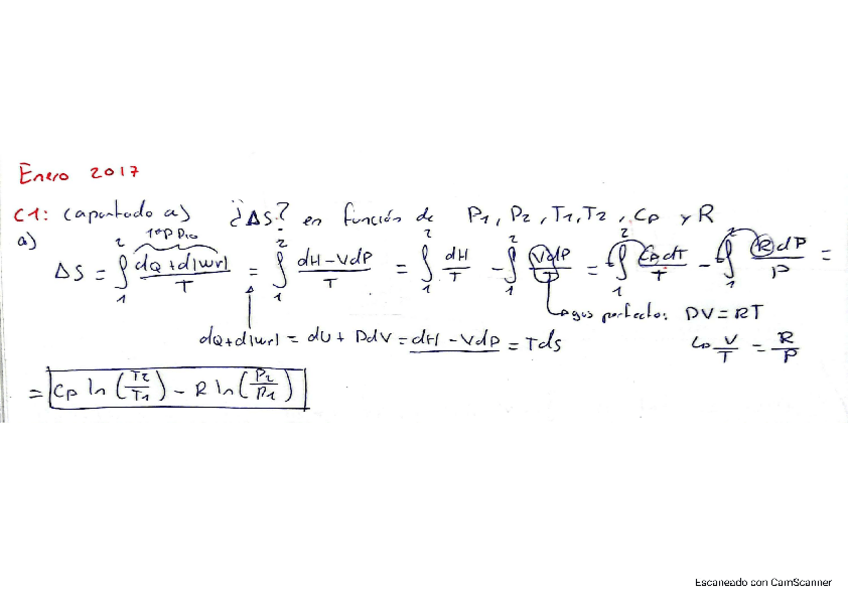 Enero 2017
C1: (apartado a) ¿¿ΔS? en función de P1, P2, T1, T2, CP y R
1er Ppio
a) ΔS = ∫₁² (dQ + d|wr|)/T = ∫₁² (dH - VdP)/T = ∫₁² dH/T - ∫₁² VdP/T = ∫₁² CpdT/T - ∫₁² RdP/P =
gas perfecto: PV = RT
dQ + d|wr| = dU + PdV = dH - VdP = Tds
V/T = R/P
= CP ln (T2/T1) - R ln (P2/P1)
Escaneado con CamScanner